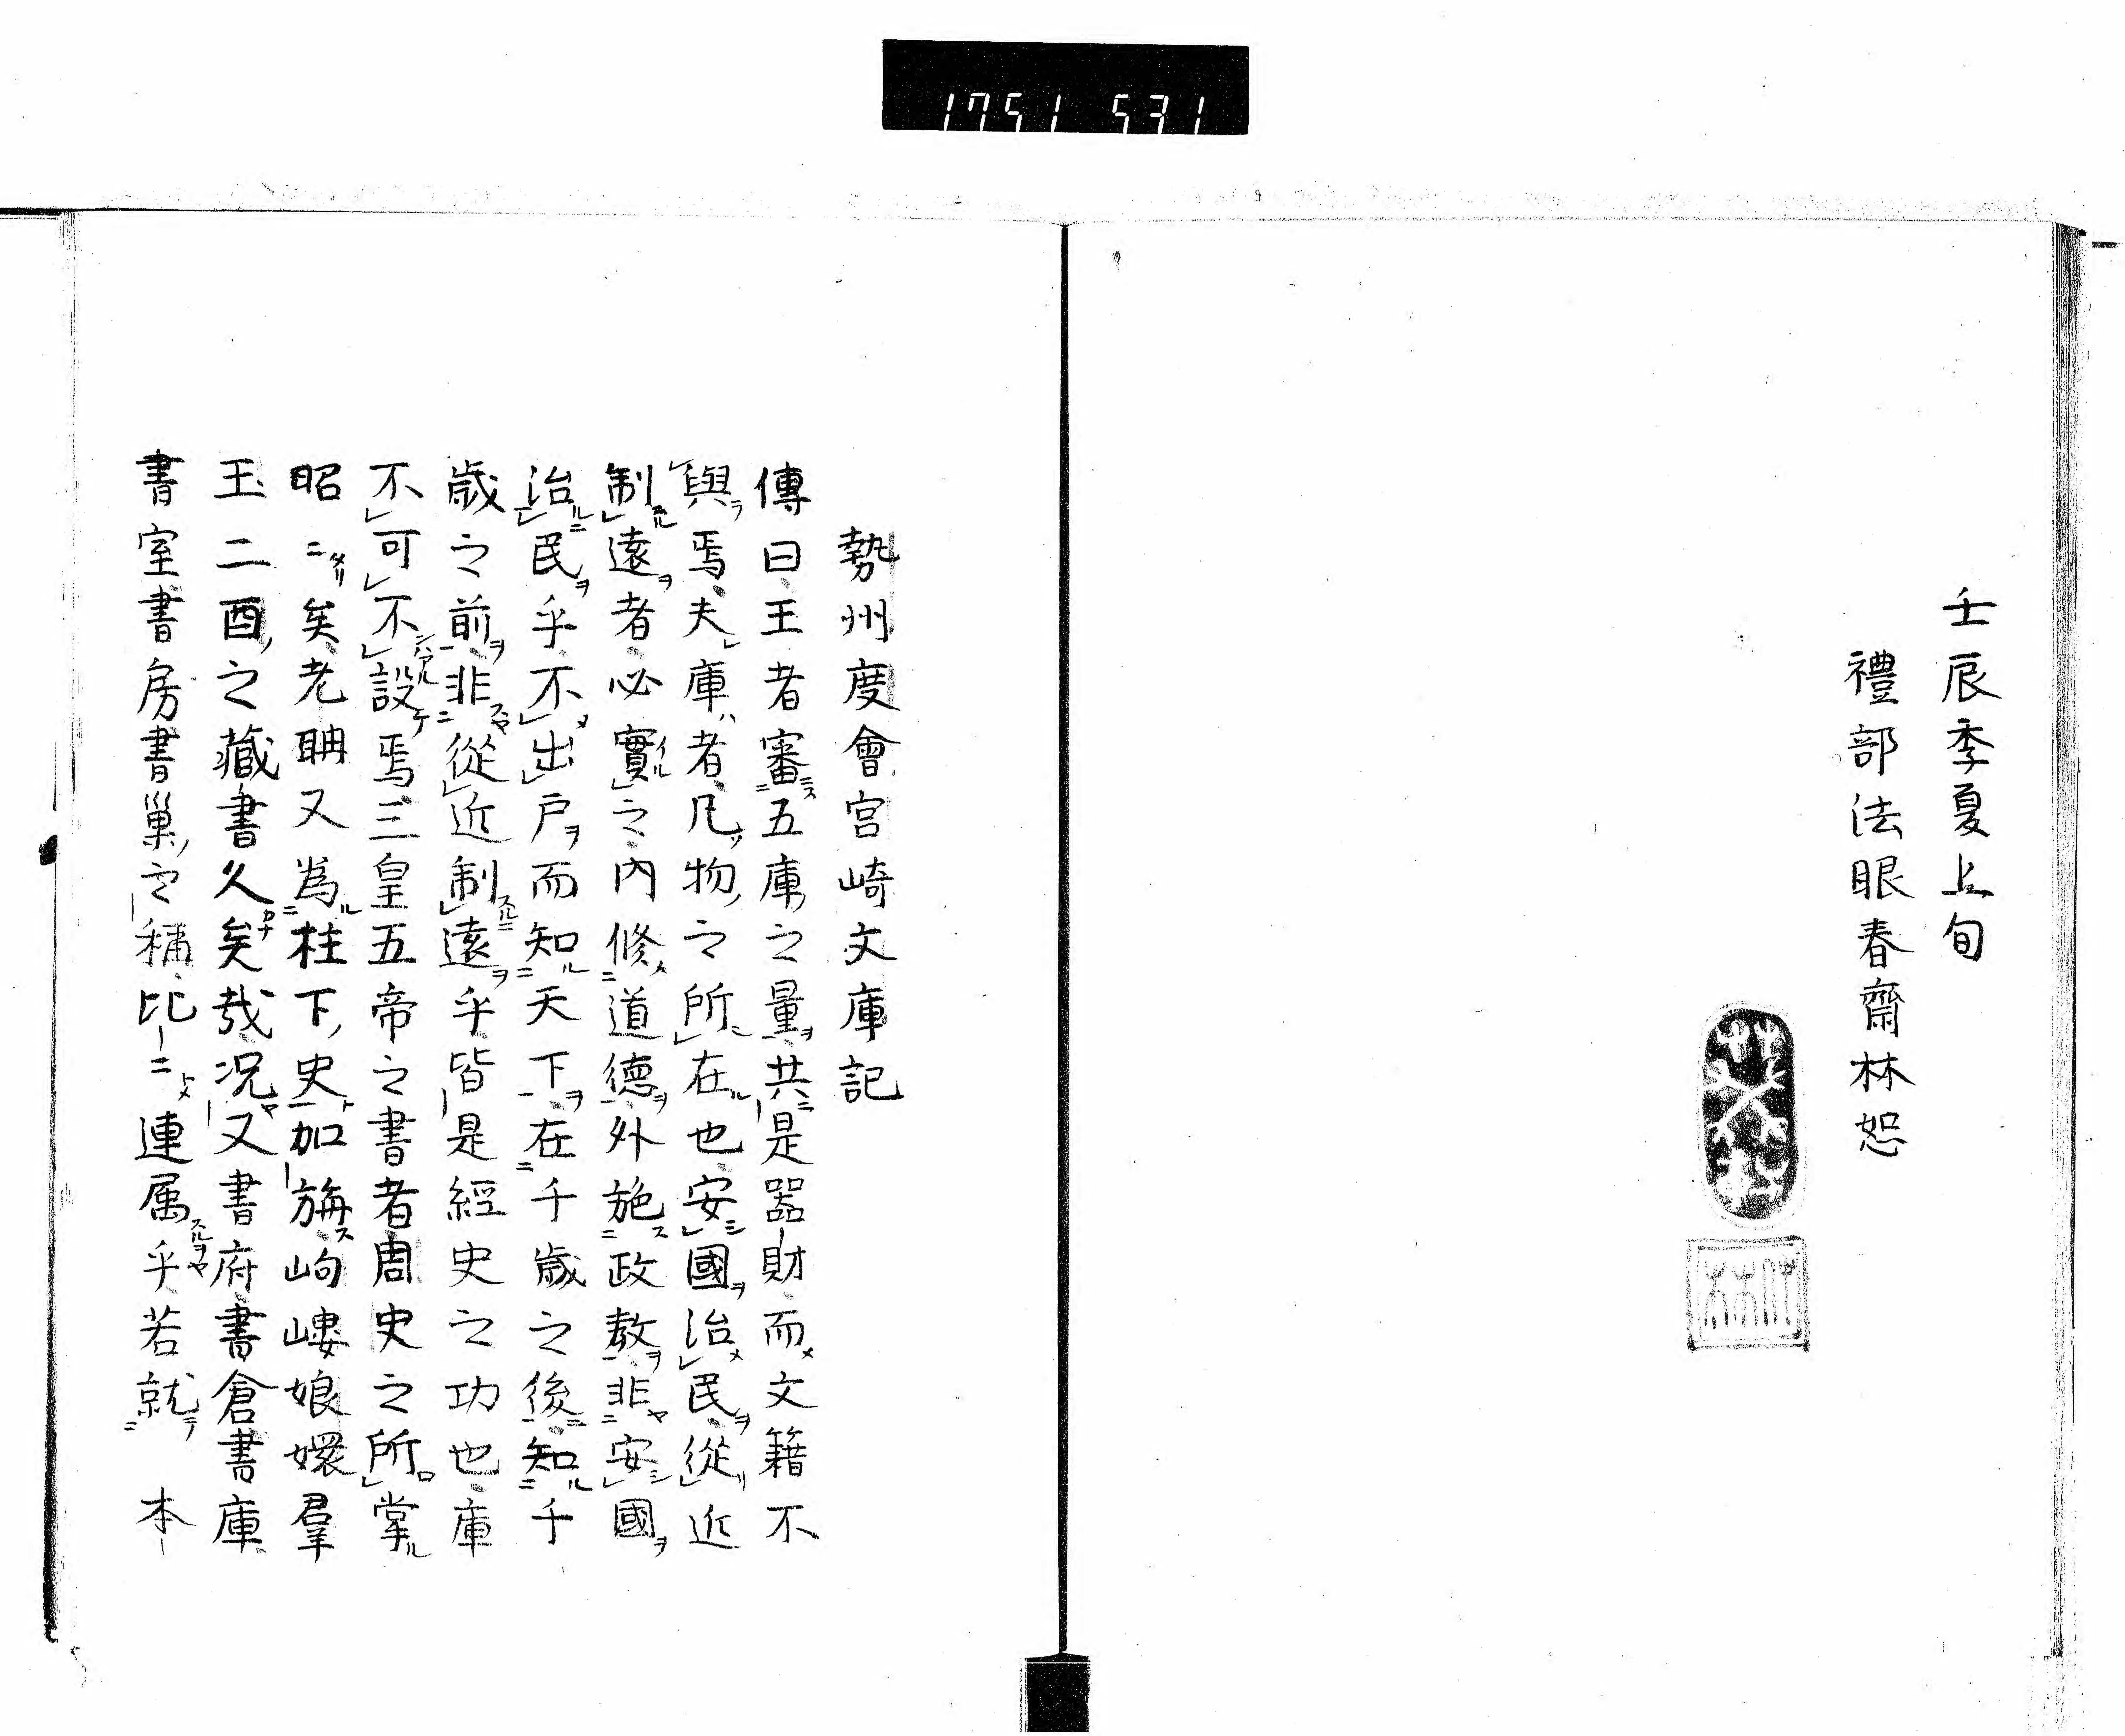 1751 531
壬辰季夏上旬
禮部法眼春齋林恕
勢州度會宮崎文庫記
傳曰王者審五庫之量共是器財而文籍不
與焉夫庫者凡物之所在也安國治民從近
制遠者必實之內修道德外施政教非安國
治民乎不出戶而知天下在千歲之後知千
歲之前非從近制遠乎皆是經史之功也庫
不可不設焉三皇五帝之書者周史之所掌
昭二矣老聃又為柱下史加旃岣嶁娘嬛羣
玉二酉之藏書久矣哉况又書府書倉書庫
書室書房書巢之稱比二連属乎若就 本